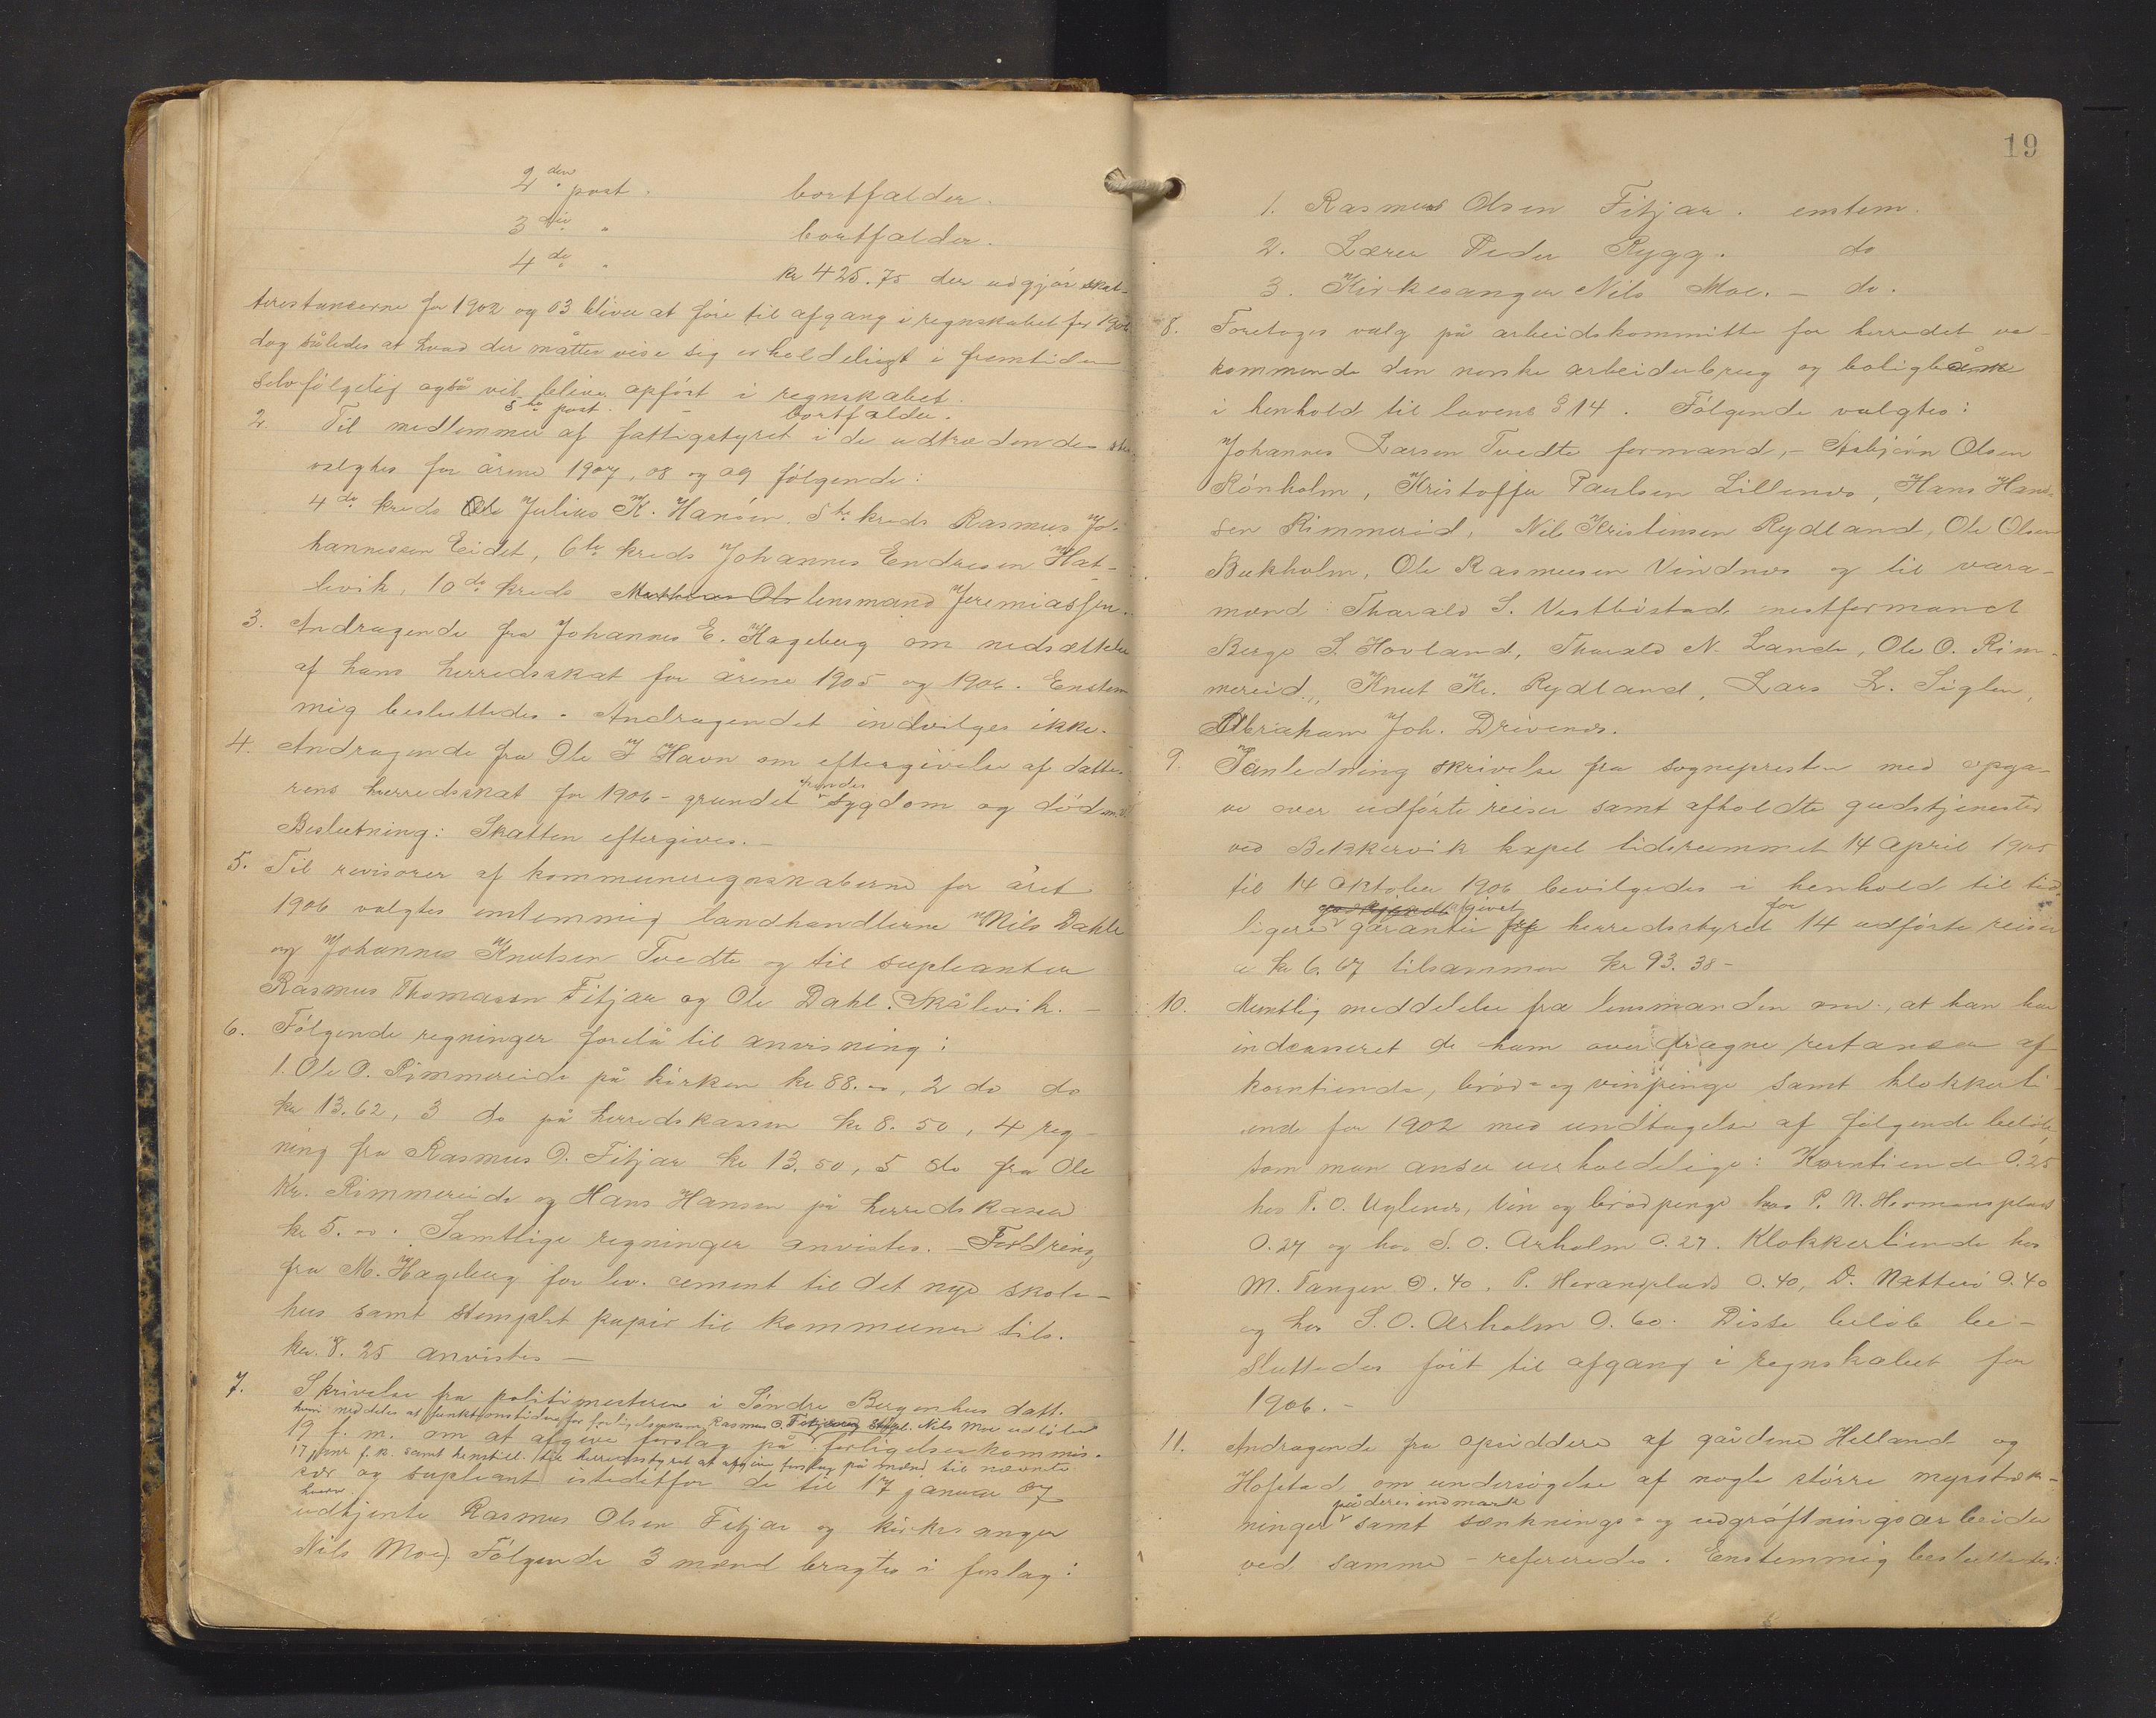 2den post. bortfalder.
3die " bortfalder.
4de " kr 425.75 der udgjør skat-
terestancerne for 1902 og 03 bliver at føre til afgang i regnskabet for 1906
dog således at hvad der måtte vise sig erholdeligt i fremtiden
selvfølgelig også vil blive opført i regnskabet.
5te post. - bortfalder.
2. Til medlemmer af fattigstyret i de udtrædendes sted
valgtes for årene 1907, 08 og 09 følgende:
4de kreds Julius K. Hansen. 5te kreds Rasmus Jo-
hannessen Eidet, 6te kreds Johannes Endresen Hat-
levik, 10de kreds Mathias Ols lensmand Jeremiassen.
3. Andragende fra Johannes E. Hageberg om nedsættelse
af hans herredsskat for årene 1905 og 1906. Enstem
mig besluttedes. Andragendet indvilges ikke.
4. Andragende fra Ole J Havn om eftergivelse af datte-
rens herredsskat for 1906 - grundet hendes sygdom og død m.v.
Beslutning: Skatten eftergives. -
5. Til revisorer af kommuneregnskaberne for året
1906 valgtes enstemmig landhandlerne Nils Dahle
og Johannes Knutsen Tvedte og til supleanter
Rasmus Thomassen Fitjar og Ole Dahl. Skålevik. -
6. Følgende regninger forelå til anvisning:
1. Ole O. Rimmereide på kirken kr 88.00, 2 do do
kr 13.62, 3 do på herredskassen kr 8.50, 4 reg-
ning fra Rasmus O. Fitjar kr 13.50, 5 do fra Ole
Kr. Rimmereide og Hans Hansen på herredskassen
kr 5.00. Samtlige regninger anvistes. - Fordring
fra M. Hageberg for lev. cement til det nye skole-
hus samt stemplet papir til kommunen tils.
kr. 8.25 anvistes -
7. Skrivelse fra politimesteren i Søndre Bergenhus datt.
hvori meddeles at funktionstiden for forligelseskom. Rasmus O. Fitjar og Nils Moe udløber
19 f. m. om at afgive forslag på forligelseskommis-
17 januar f. k. samt henstill. til herredsstyret at afgive forslag på mænd til nævnte
sær og supleant istedetfor de til 17 januar 07
hverv.
udtjente Rasmus Olsen Fitjar og kirkesanger
Nils Moe). Følgende 3 mænd bragtes i forslag:
19
1. Rasmus Olsen Fitjar. enstem.
2. Lærer Peder Rygg. do
3. Kirkesanger Nils Moe. - do.
8. Foretoges valg på arbeidskommitte for herredet ved-
kommende den norske arbeiderbrug og boligbank
i henhold til lovens § 14. Følgende valgtes:
Johannes Larsen Tvedte formand, - Asbjørn Olsen
Rønholm, Kristoffer Paulsen Lillenes, Hans Han-
sen Rimmereid, Nils Kristensen Rydland, Ole Olsen
Bukholm, Ole Rasmusen Vindnes og til vara-
mænd: Tharald S. Vestbøstad, nestformand
Berge S. Hovland, Tharald N. Lande, Ole O. Rim-
mereid, Knut Kr. Rydland, Lars L. Siglen,
Abraham Joh. Drivenes.
9. I anledning skrivelse fra sognepresten med opga-
ve over udførte reiser samt afholdte gudstjenester
ved Bekkervik kapel tidsrummet 14 April 1905
til 14 Oktober 1906 bevilgedes i henhold til tid-
givet for
ligere garanti herredsstyret 14 udførte reiser
a kr 6.67 tilsammen kr 93.38 -
10. Mundtlig meddelelse fra lensmanden om, at han har
indcasseret de ham overdragne restancer af
korntiende, brød- og vinpenge samt klokkerti-
ende for 1902 med undtagelse af følgende beløb
som man anser uerholdelige: Korntiende 0.25
hos T. O. Uglenes, Vin og brødpenge hos P. N. Hermansplads
0.27 og hos S. O. Arholm 0.27. Klokkertiende hos
M. Tangen 0.40, P. Hermansplads 0.40, D. Nætterø 0.40
og hos S. O. Arholm 0.60. Disse beløb be-
sluttedes ført til afgang i regnskabet for
1906. -
11. Andragende fra opsiddere af gårdene Helland og
Hofstad om undersøgelse af nogle større myrstræk-
på deres indmark
ninger samt sænknings- og udgrøftningsarbeider
ved samme - refereredes. Enstemmig besluttedes: